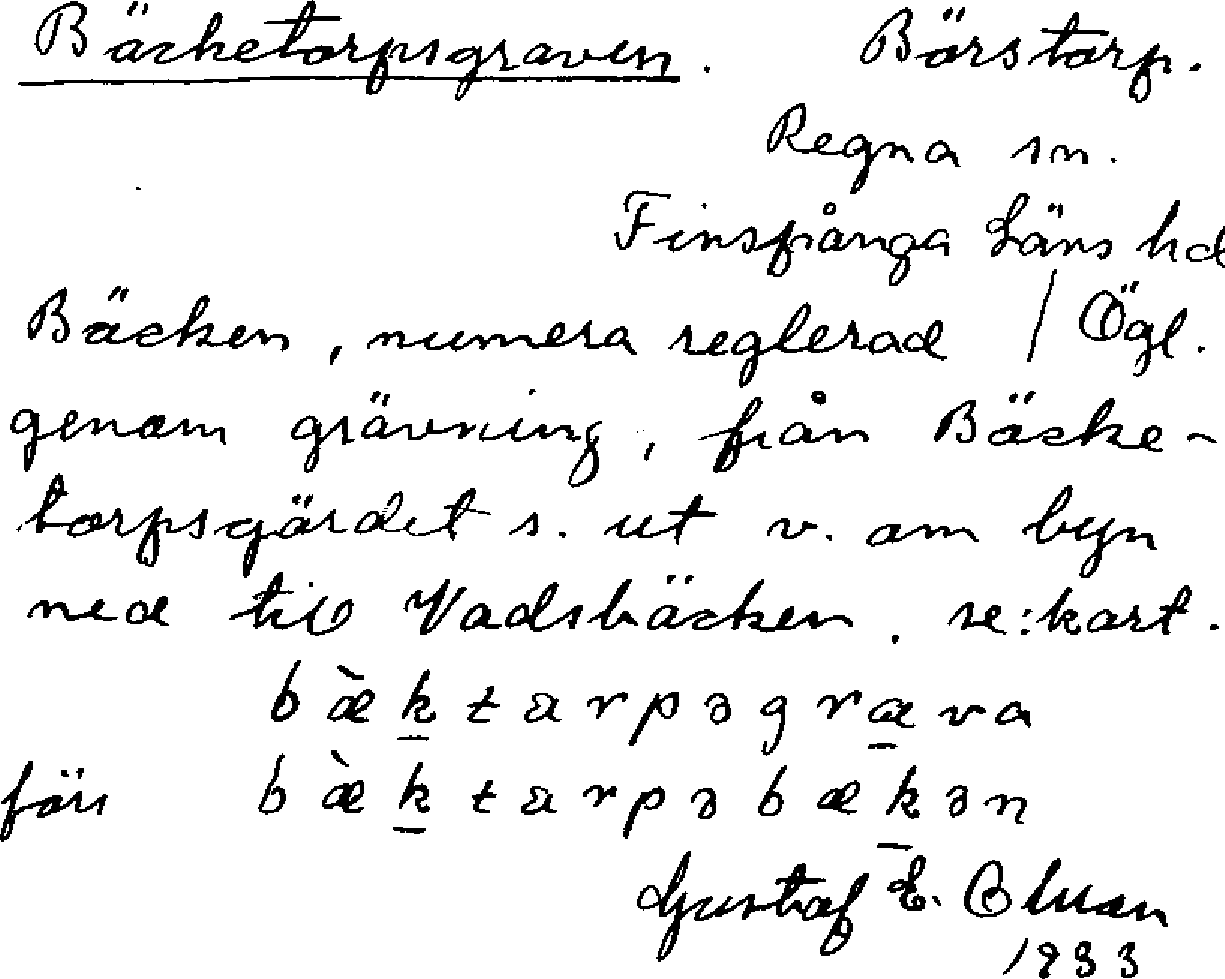 Bäcketorpsgraven. Börstorp.
Regna sn.
Finspånga Läns hd
Bäcken, numera reglerad / Ögl.
genom grävning, från Bäcke-
torpsgärdet s. ut v. om byn
ned till Vadsbäcken. se: kart.
bæ̀k̲tarpəgræ̲va
förr bæ̀k̲tarpəbæk̲ən
Gustaf E.
1933